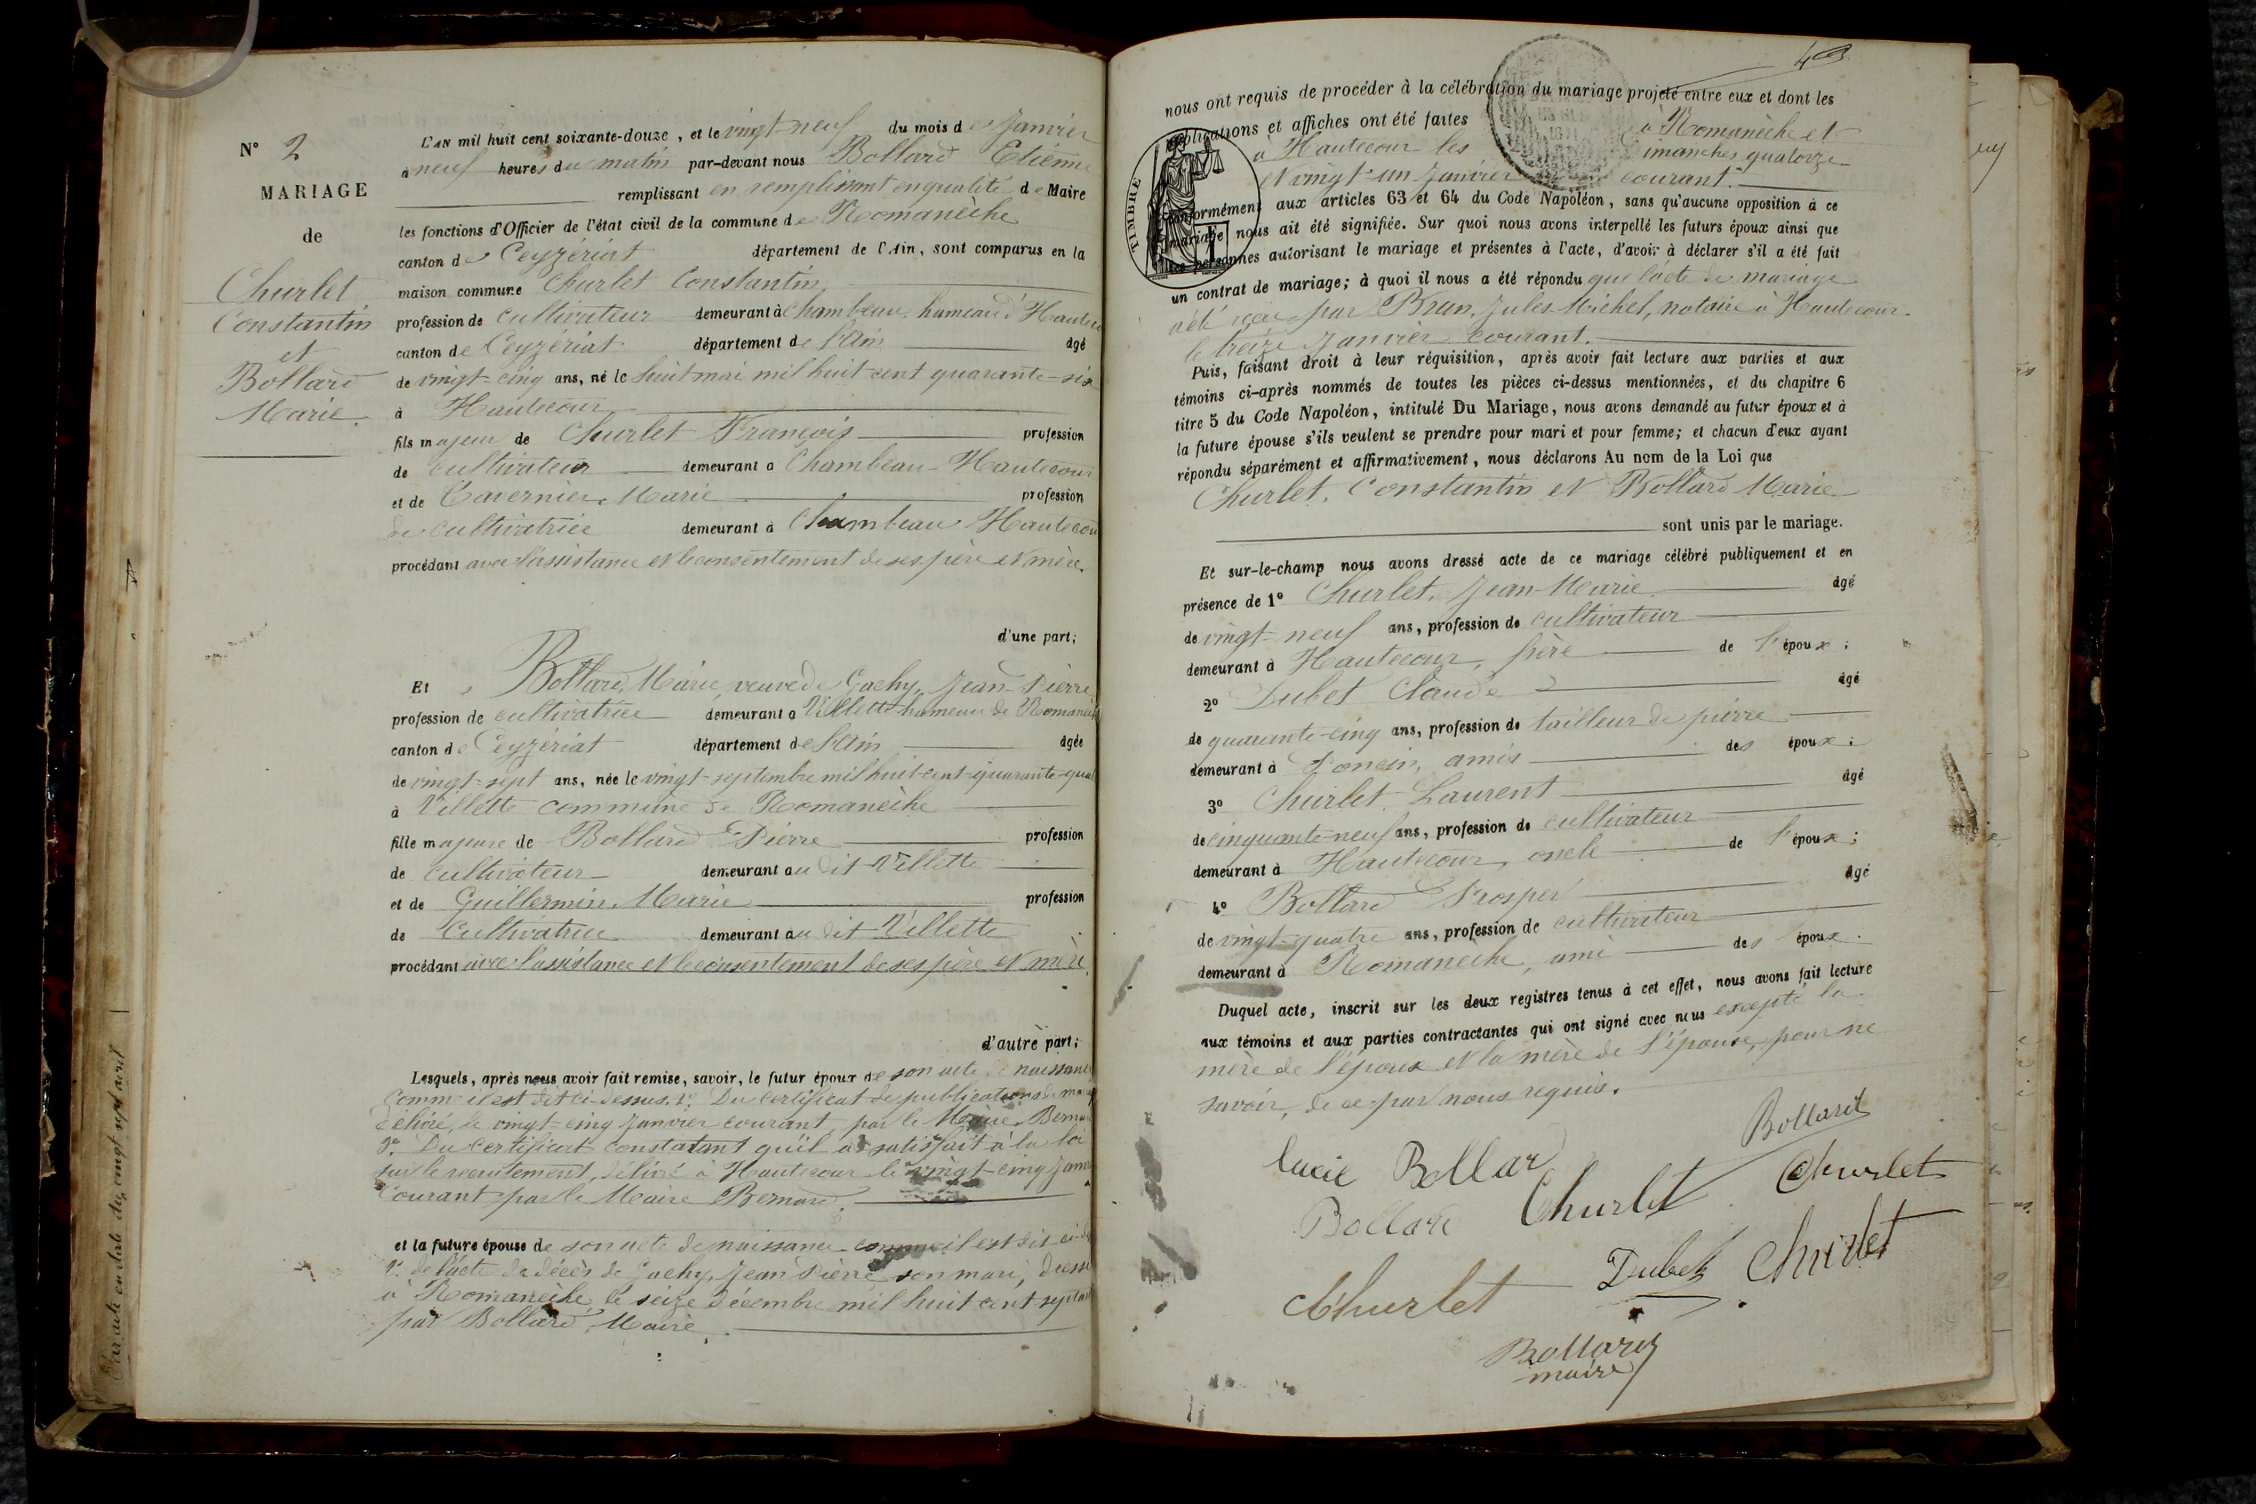 N° 2
MARIAGE
de
Churlet
Constantin
et
Bollard
Marie.
L'AN mil huit cent soixante-douze, et le vingt-neuf du mois de Janvier
à neuf heures du matin par-devant nous Bollard Etienne
remplissant en remplissant en qualité de Maire
les fonctions d'Officier de l'état civil de la commune de Romanèche
canton de Ceyzériat département de l'Ain, sont comparus en la
maison commune Churlet Constantin,
profession de cultivateur demeurant à Chambeau, hameau d'Hauteco
canton de Ceyzériat département de l'Ain âgé
de vingt-cinq ans, né le huit mai mil huit cent quarante-six
à Hautecour
fils majeur de Churlet François profession
de cultivateur demeurant à Chambeau-Hautecour
et de Tavernier Marie profession
de cultivatrice demeurant à Chambeau Hautecou
procédant avec l'assistance et le consentement de ses père et mère.
d'une part;
Et Bollard, Marie, veuve de Gachy, Jean-Pierre
profession de cultivatrice demeurant à Villette hameau de Romanèch
canton de Ceyzériat département de l'Ain âgée
de vingt-sept ans, née le vingt septembre mil huit-cent-quarante-quat
à Villette commune de Romanèche
fille majeure de Bollard Pierre profession
de cultivateur demeurant au dit Villette
et de Guillermin, Marie profession
de cultivatrice demeurant au dit Villette
procédant avec l'assistance et le consentement de ses père et mère.
d'autre part;
Lesquels, après nous avoir fait remise, savoir, le futur époux de son acte de naissance
comme il est dit ci-dessus, 1° Du certificat de publications de ma
délivré, le vingt-cinq Janvier courant, par le Maire Berna
2° Du certificat constatant qu'il a satisfait à la loi
sur le recrutement, délivré à Hautecour le vingt-cinq Janv
courant par le Maire Bernard.
et la future épouse de son acte de naissance comme il est dit ci-d
1° de l'acte de décès de Gachy, Jean Pierre son mari, dressé
à Romanèche le seize décembre mil huit cent septan
par Bollard, Maire.
nous ont requis de procéder à la célébration du mariage projeté entre eux et dont les
publications et affiches ont été faites à Romanèche et
à Hautecour les Dimanches quatorze
et vingt-un Janvier courant.
TIMBRE
conformément aux articles 63 et 64 du Code Napoléon, sans qu'aucune opposition à ce
mariage nous ait été signifiée. Sur quoi nous avons interpellé les futurs époux ainsi que
les personnes autorisant le mariage et présentes à l'acte, d'avoir à déclarer s'il a été fait
un contrat de mariage; à quoi il nous a été répondu que l'acte de mariage
a été reçu par Brun, Jules Michel, notaire à Hautecour.
le treize Janvier courant.
Puis, faisant droit à leur réquisition, après avoir fait lecture aux parties et aux
témoins ci-après nommés de toutes les pièces ci-dessus mentionnées, et du chapitre 6
titre 5 du Code Napoléon, intitulé Du Mariage, nous avons demandé au futur époux et à
la future épouse s'ils veulent se prendre pour mari et pour femme; et chacun d'eux ayant
répondu séparément et affirmativement, nous déclarons Au nom de la Loi que
Churlet, Constantin et Bollard Marie
sont unis par le mariage.
Et sur-le-champ nous avons dressé acte de ce mariage célébré publiquement et en
présence de 1° Churlet, Jean-Marie âgé
de vingt-neuf ans, profession de cultivateur
demeurant à Hautecour, frère de l'époux;
2° Dubet Claude âgé
de quarante-cinq ans, profession de tailleur de pierre
demeurant à Poncin, amis des époux;
3° Churlet Laurent âgé
de cinquante-neuf ans, profession de cultivateur
demeurant à Hautecour, oncle de l'époux;
4° Bollard Prosper âgé
de vingt-quatre ans, profession de cultivateur
demeurant à Romanèche, ami des époux.
Duquel acte, inscrit sur les deux registres tenus à cet effet, nous avons fait lecture
aux témoins et aux parties contractantes qui ont signé avec nous excepté la
mère de l'époux et la mère de l'épouse, pour ne
savoir, de ce par nous requis.
Bollard
lucie Bollar Churlet Churlet
Bollard
Churlet Dubet Churlet
Bollard
maire